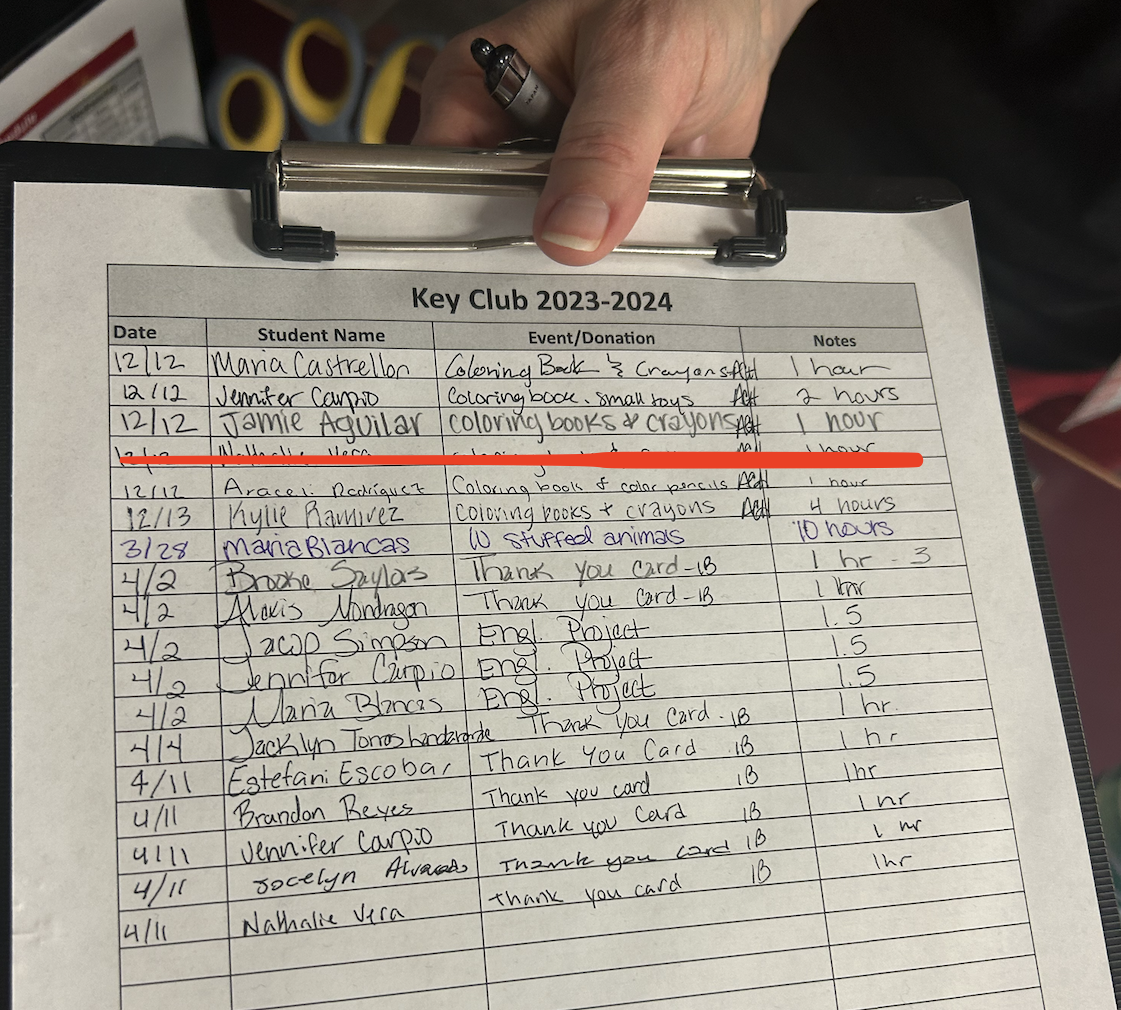 JAPAN
Key Club 2023-2024
Date Student Name Event/Donation Notes
12/12 Maria Castrellon Coloring Book & Crayons AH 1 hour
12/12 Jennifer Carpio Coloring book. small toys AH 2 hours
12/12 Jamie Aguilar coloring books & crayons AH 1 hour
12/12 Nathalie Vera 1 hour
12/12 Araceli Rodriguez Coloring book & color pencils AH 1 hour
12/13 Kylie Ramirez coloring books + crayons AH 4 hours
3/28 Maria Blancas 10 stuffed animals 10 hours
4/2 Brooke Saylas Thank you Card-IB 1 hr - 3
4/2 Alexis Mondragon Thank you Card-IB 1 hr
4/2 Jacob Simpson Engl. Project 1.5
4/2 Jennifer Carpio Engl. Project 1.5
4/2 Maria Blancas Engl. Project 1.5
4/4 Jacklyn Torres Thank You Card. IB 1 hr.
4/11 Estefani Escobar Thank You Card IB 1 hr
4/11 Brandon Reyes Thank you card IB 1hr
4/11 Jennifer Carpio Thank you Card IB 1 hr
4/11 Jocelyn Thank you card IB 1 hr
4/11 Nathalie Vera thank you card IB 1hr